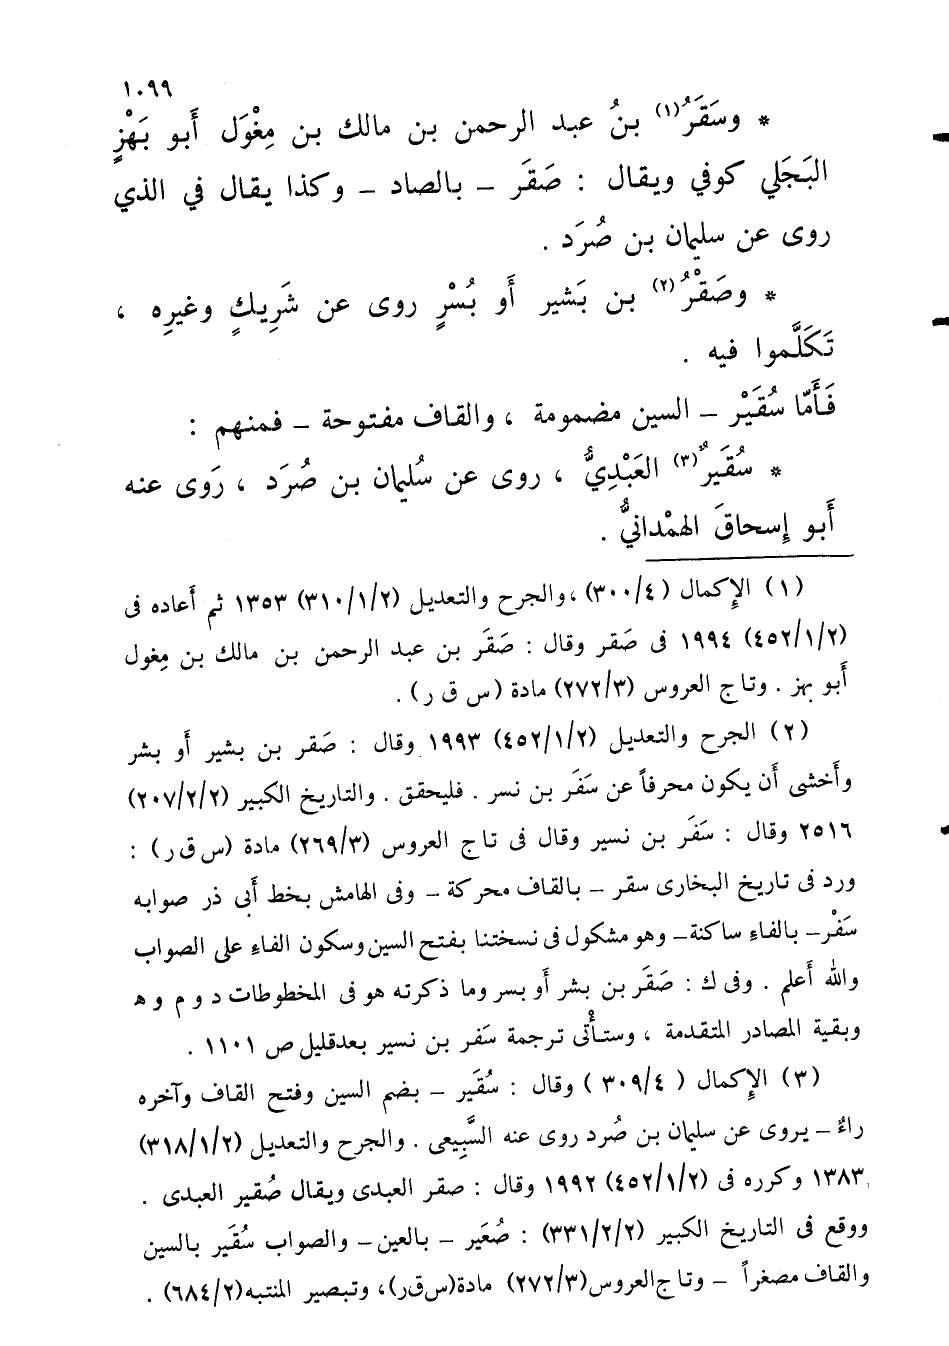 ١٠٩٩
* وسَقَرُ(١) بنُ عبد الرحمن بن مالك بن مِغْوَل أَبو بَهْزٍ
البَجَلي كوفي ويقال : صَقَر – بالصاد – وكذا يقال في الذي
روى عن سليمان بن صُرَد .
* وصَقْرُ(٢) بن بَشير أَو بُسْرٍ روى عن شَرِيكٍ وغيرِه ،
تَكَلَّموا فيه .
فَأَمَّا سُقَيْر – السين مضمومة ، والقاف مفتوحة – فمنهم :
* سُقَيرٌ(٣) العَبْدِيُّ ، روى عن سُليمان بن صُرَد ، رَوى عنه
أَبو إِسحاقَ الهمْدانيُّ .
(١) الإِكمال (٣٠٠/٤) ،والجرح والتعديل (٣١٠/١/٢) ١٣٥٣ ثم أَعاده فى
(٤٥٢/١/٢) ١٩٩٤ فى صَقر وقال : صَقَر بن عبد الرحمن بن مالك بن مِغول
أَبو بهز . وتاج العروس (٢٧٢/٣) مادة (س ق ر) .
(٢) الجرح والتعديل (٤٥٢/١/٢) ١٩٩٣ وقال : صَقر بن بشير أَو بشر
وأَخشى أَن يكون محرفاً عن سَفَر بن نسر . فليحقق . والتاريخ الكبير (٢٠٧/٢/٢)
٢٥١٦ وقال : سَفَر بن نسير وقال فى تاج العروس (٢٦٩/٣) مادة (س ق ر) :
ورد فى تاريخ البخارى سقر – بالقاف محركة – وفى الهامش بخط أَبى ذر صوابه
سَفْر– بالفاءِ ساكنة– وهو مشكول فى نسختنا بفتح السين وسكون الفاءِ على الصواب
والله أَعلم . وفى ك : صَقَر بن بشر أَو بسر وما ذكرته هو فى المخطوطات د و م و ﻫ
وبقية المصادر المتقدمة ، وستأْتى ترجمة سَفر بن نسير بعدقليل ص ١١٠١ .
(٣) الإِكمال ( ٣٠٩/٤ ) وقال : سُقَير – بضم السين وفتح القاف وآخره
راءٌ – يروى عن سليمان بن صُرد روى عنه السَّبِيعى . والجرح والتعديل (٣١٨/١/٢)
١٣٨٣ وكرره فى (٤٥٢/١/٢) ١٩٩٢ وقال : صقر العبدى ويقال صُقير العبدى .
ووقع فى التاريخ الكبير (٣٣١/٢/٢) : صُعَير – بالعين– والصواب سُقَير بالسين
والقاف مصغراً – وتاج العروس(٢٧٢/٣) مادة(س ق ر)، وتبصير المنتبه(٦٨٤/٢) .